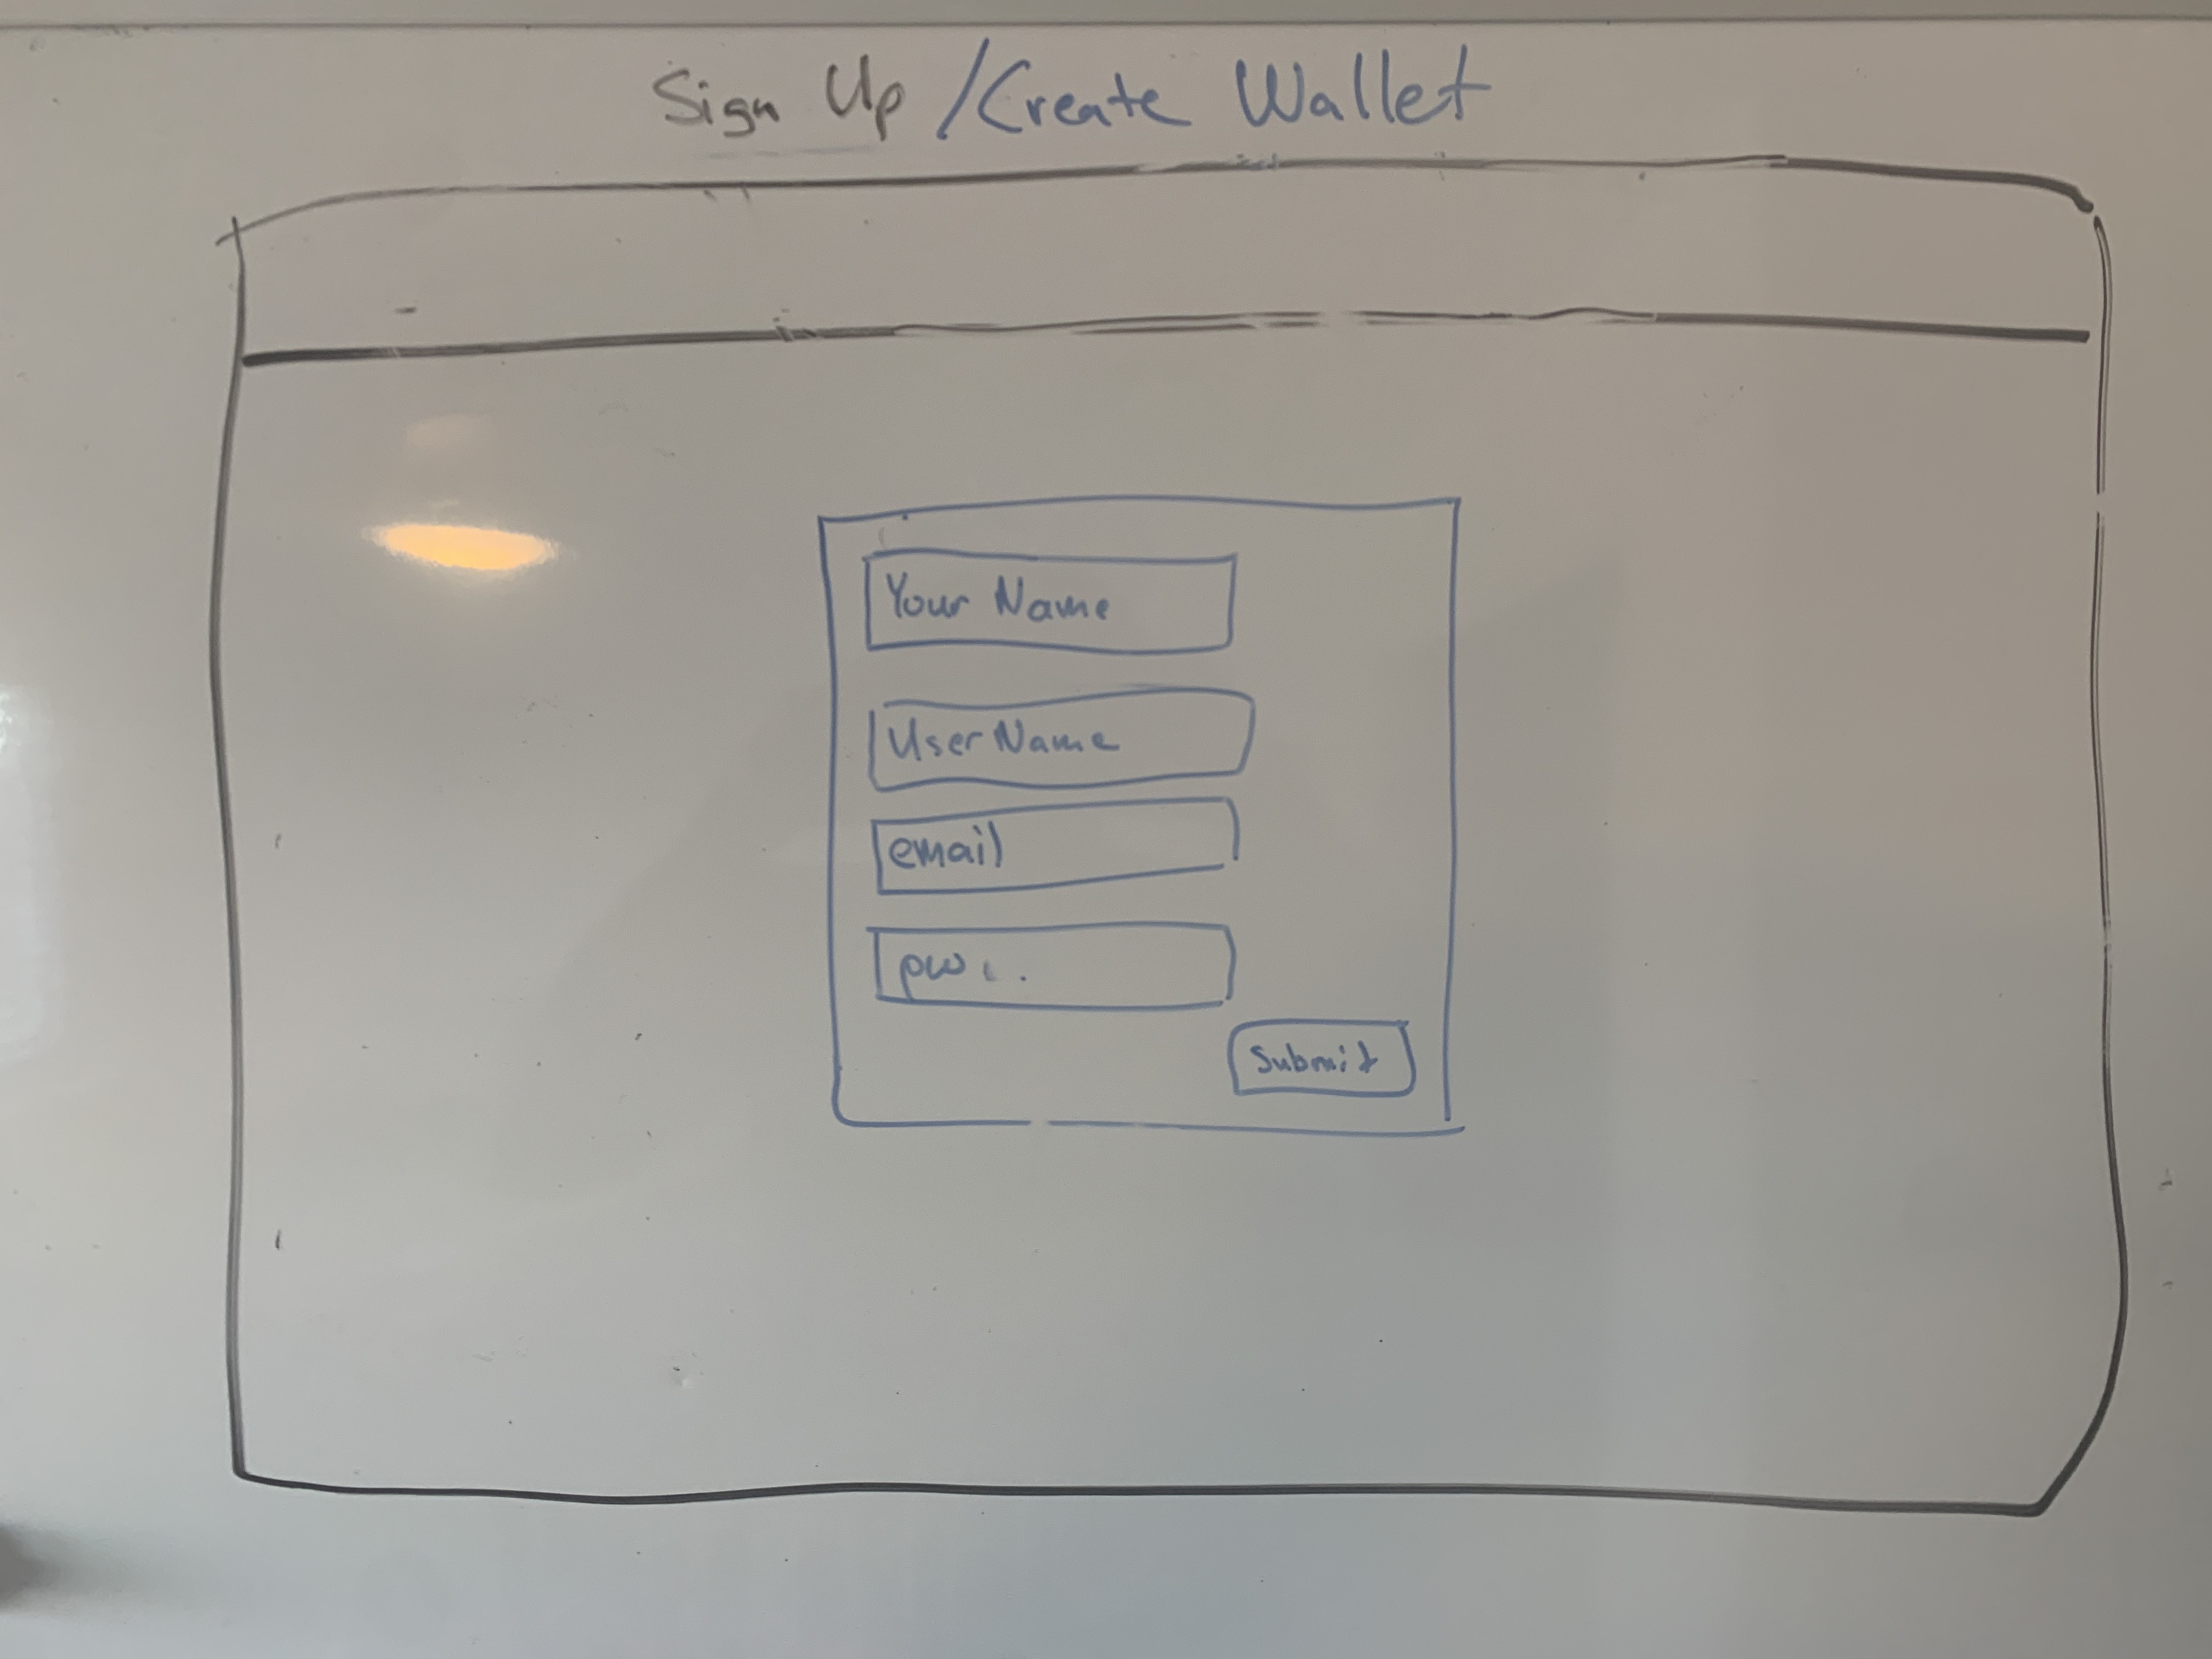 Sign Up / Create Wallet
Your Name
UserName
email
pw...
Submit